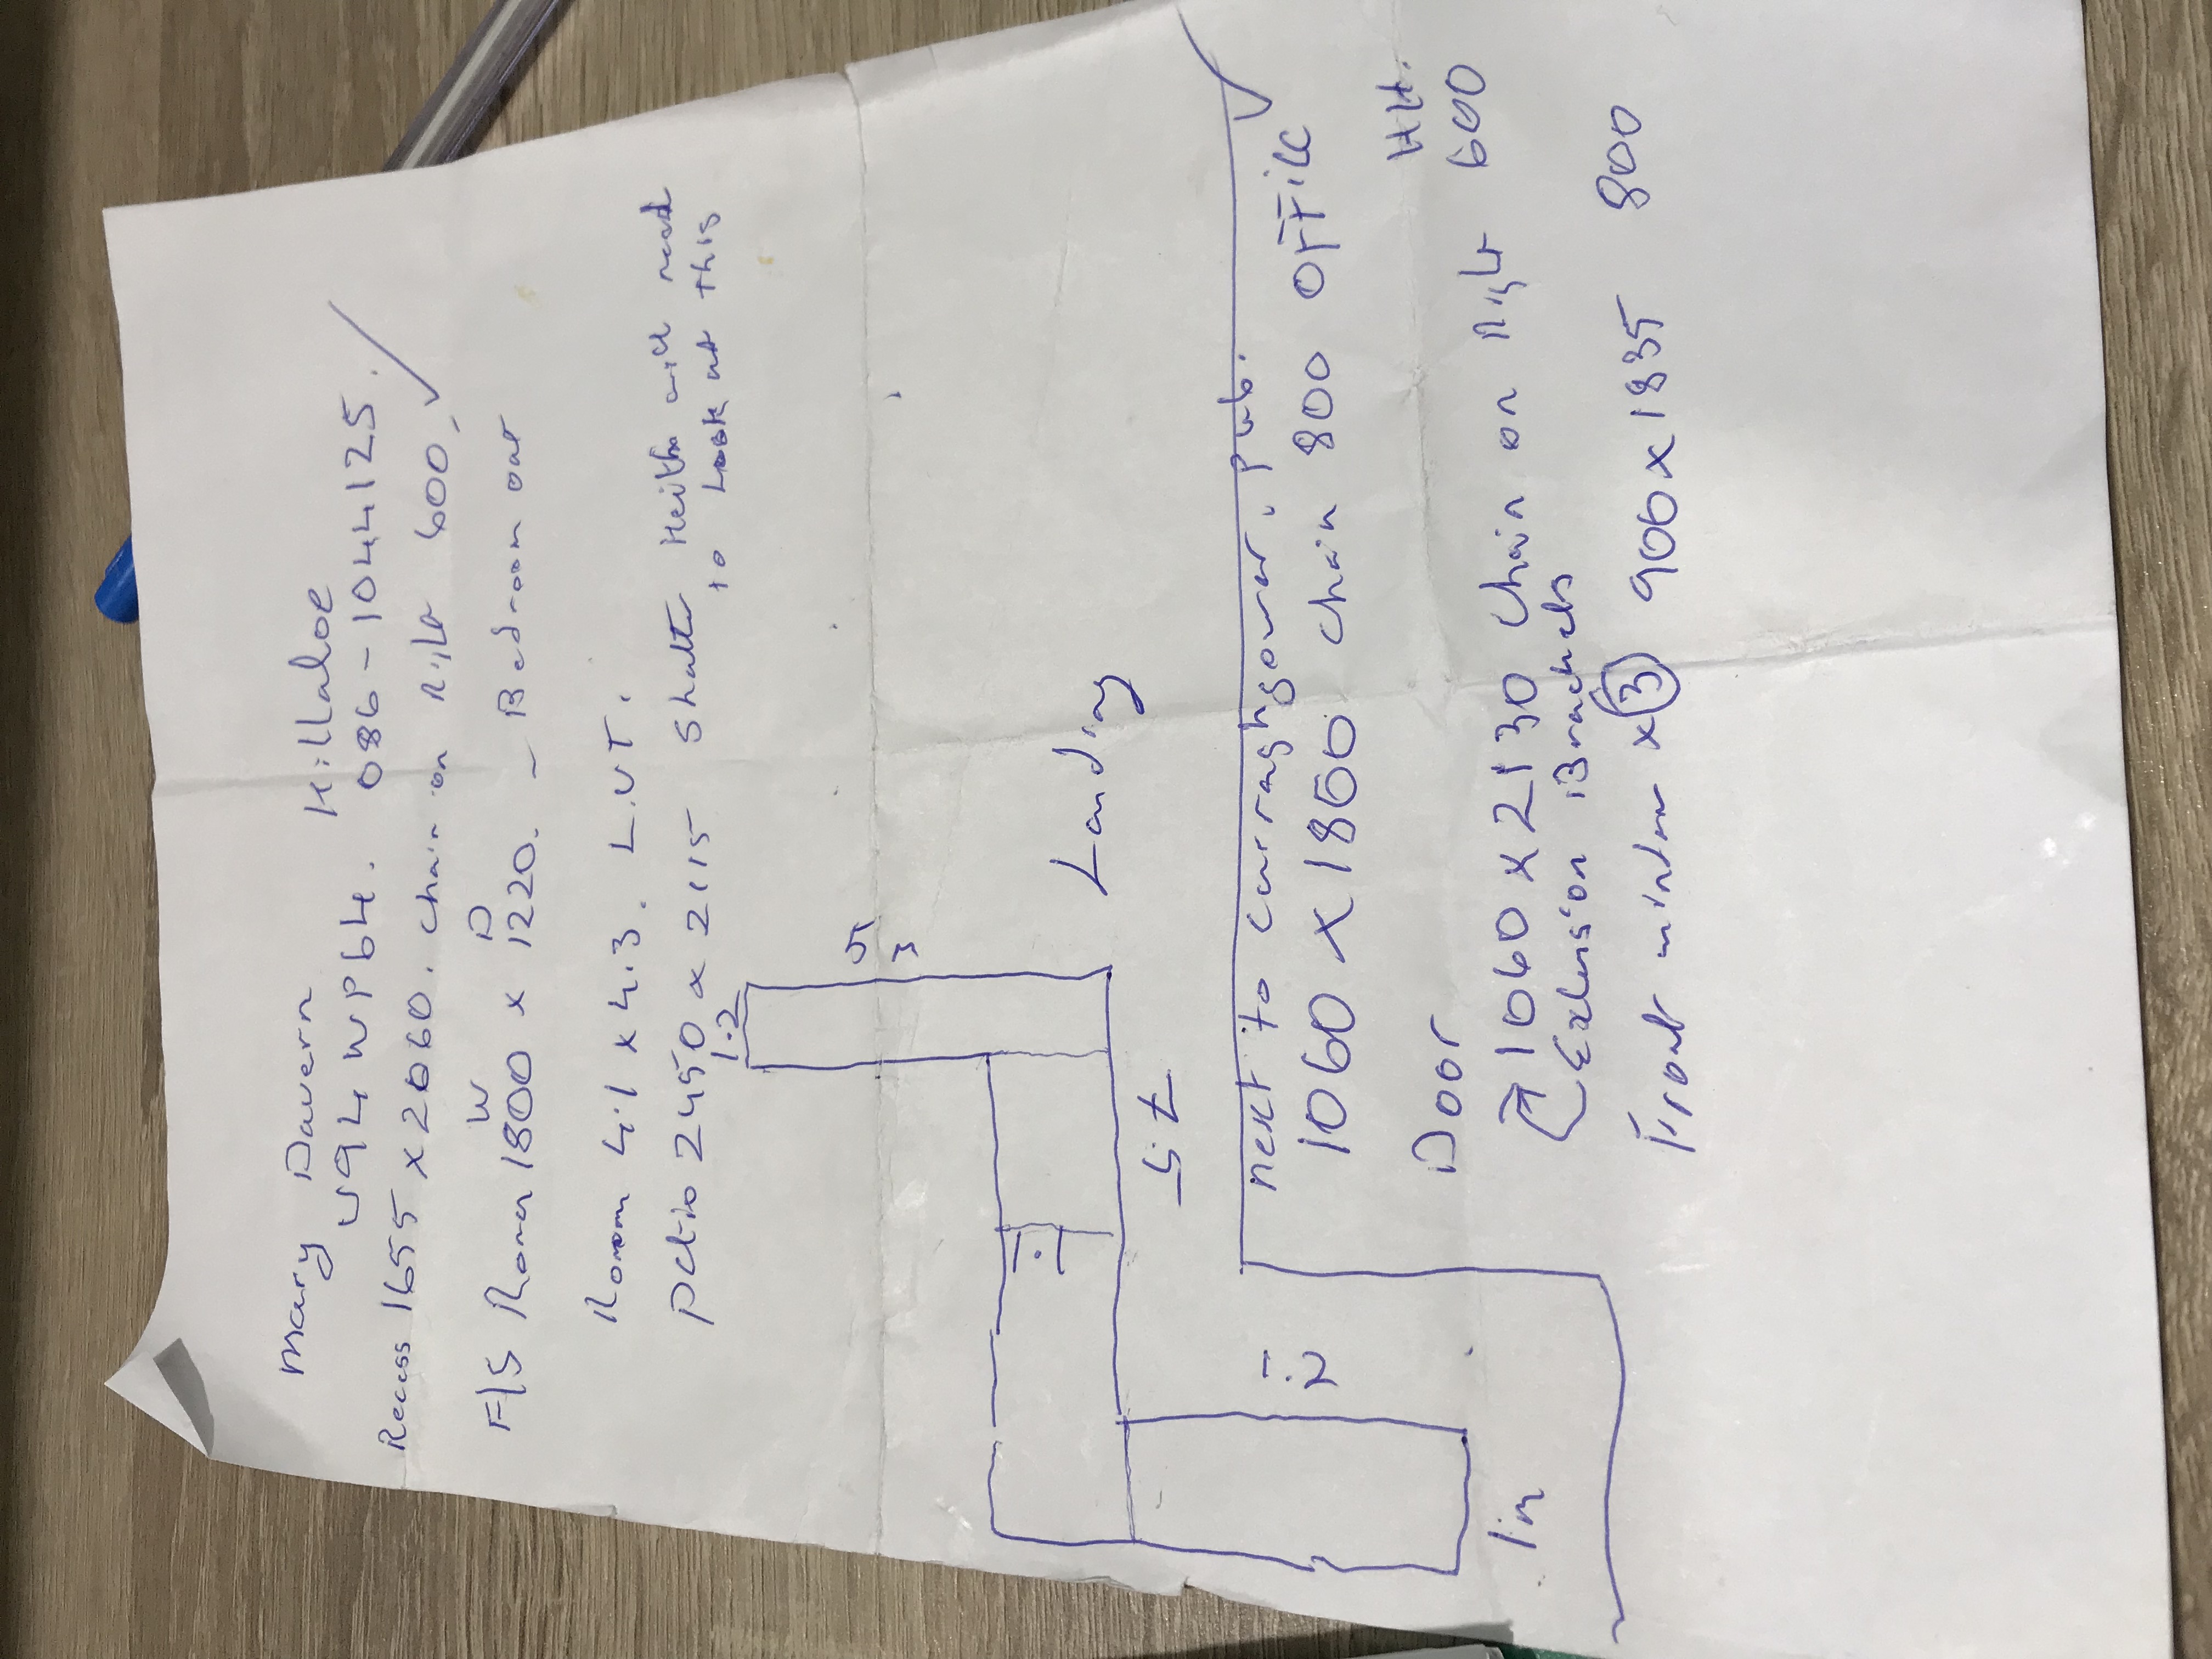 Mary Davern Killaloe
V94 WP64. 086-1044125.
Recess 1655 x 2060. Chain on Right 600.
W D
F/S Roman 1800 x 1220. - Bedroom out
Room 4.1 x 4.3. L.V.T.
patio 2450 x 2115 shutter Keith will need
to look at this
1.2
5
3
Landing
Sit
1m
next to Curraghgower. pub.
1060 x 1860 chain 800 OFFice
HH.
Door
1060 x 2130 Chain on Right 600
Extension Brackets
Front window x 3 900 x 1835 800